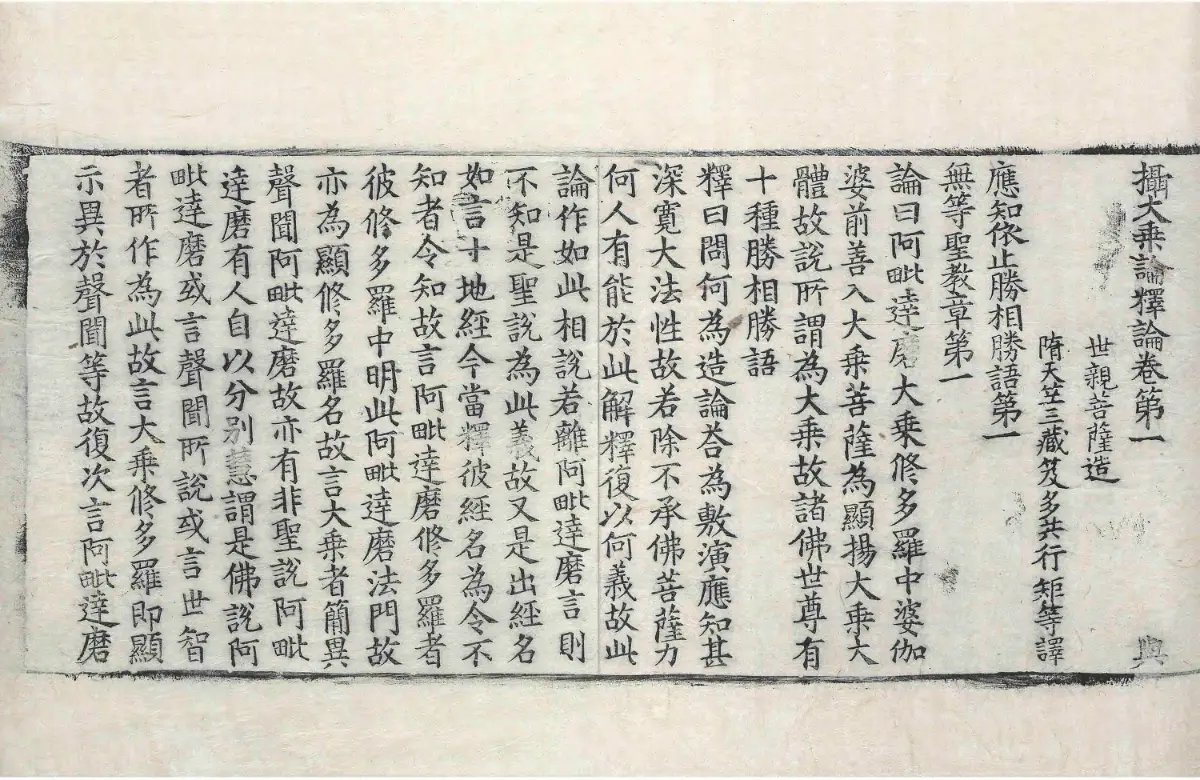 攝大乗論釋論卷第一 興
世親菩薩造
隋天竺三藏笈多共行矩等譯
應知依止勝相勝語第一
無等聖教章第一
論曰阿毗達磨大乗修多羅中婆伽
婆前善入大乗菩薩為顯揚大乗大
體故說所謂為大乗故諸佛世尊有
十種勝相勝語
釋曰問何為造論荅為敷演應知甚
深寛大法性故若除不承佛菩薩力
何人有能於此解釋復以何義故此
論作如此相說若離阿毗達磨言則
不知是聖說為此義故又是出經名
如言十地經今當釋彼經名為令不
知者令知故言阿毗達磨修多羅者
彼修多羅中明此阿毗達磨法門故
亦為顯修多羅名故言大乗者簡異
聲聞阿毗達磨故亦有非聖說阿毗
達磨有人自以分别慧謂是佛說阿
毗達磨或言聲聞所說或言世智
者所作為此故言大乗修多羅即顯
示異於聲聞等故復次言阿毗達磨